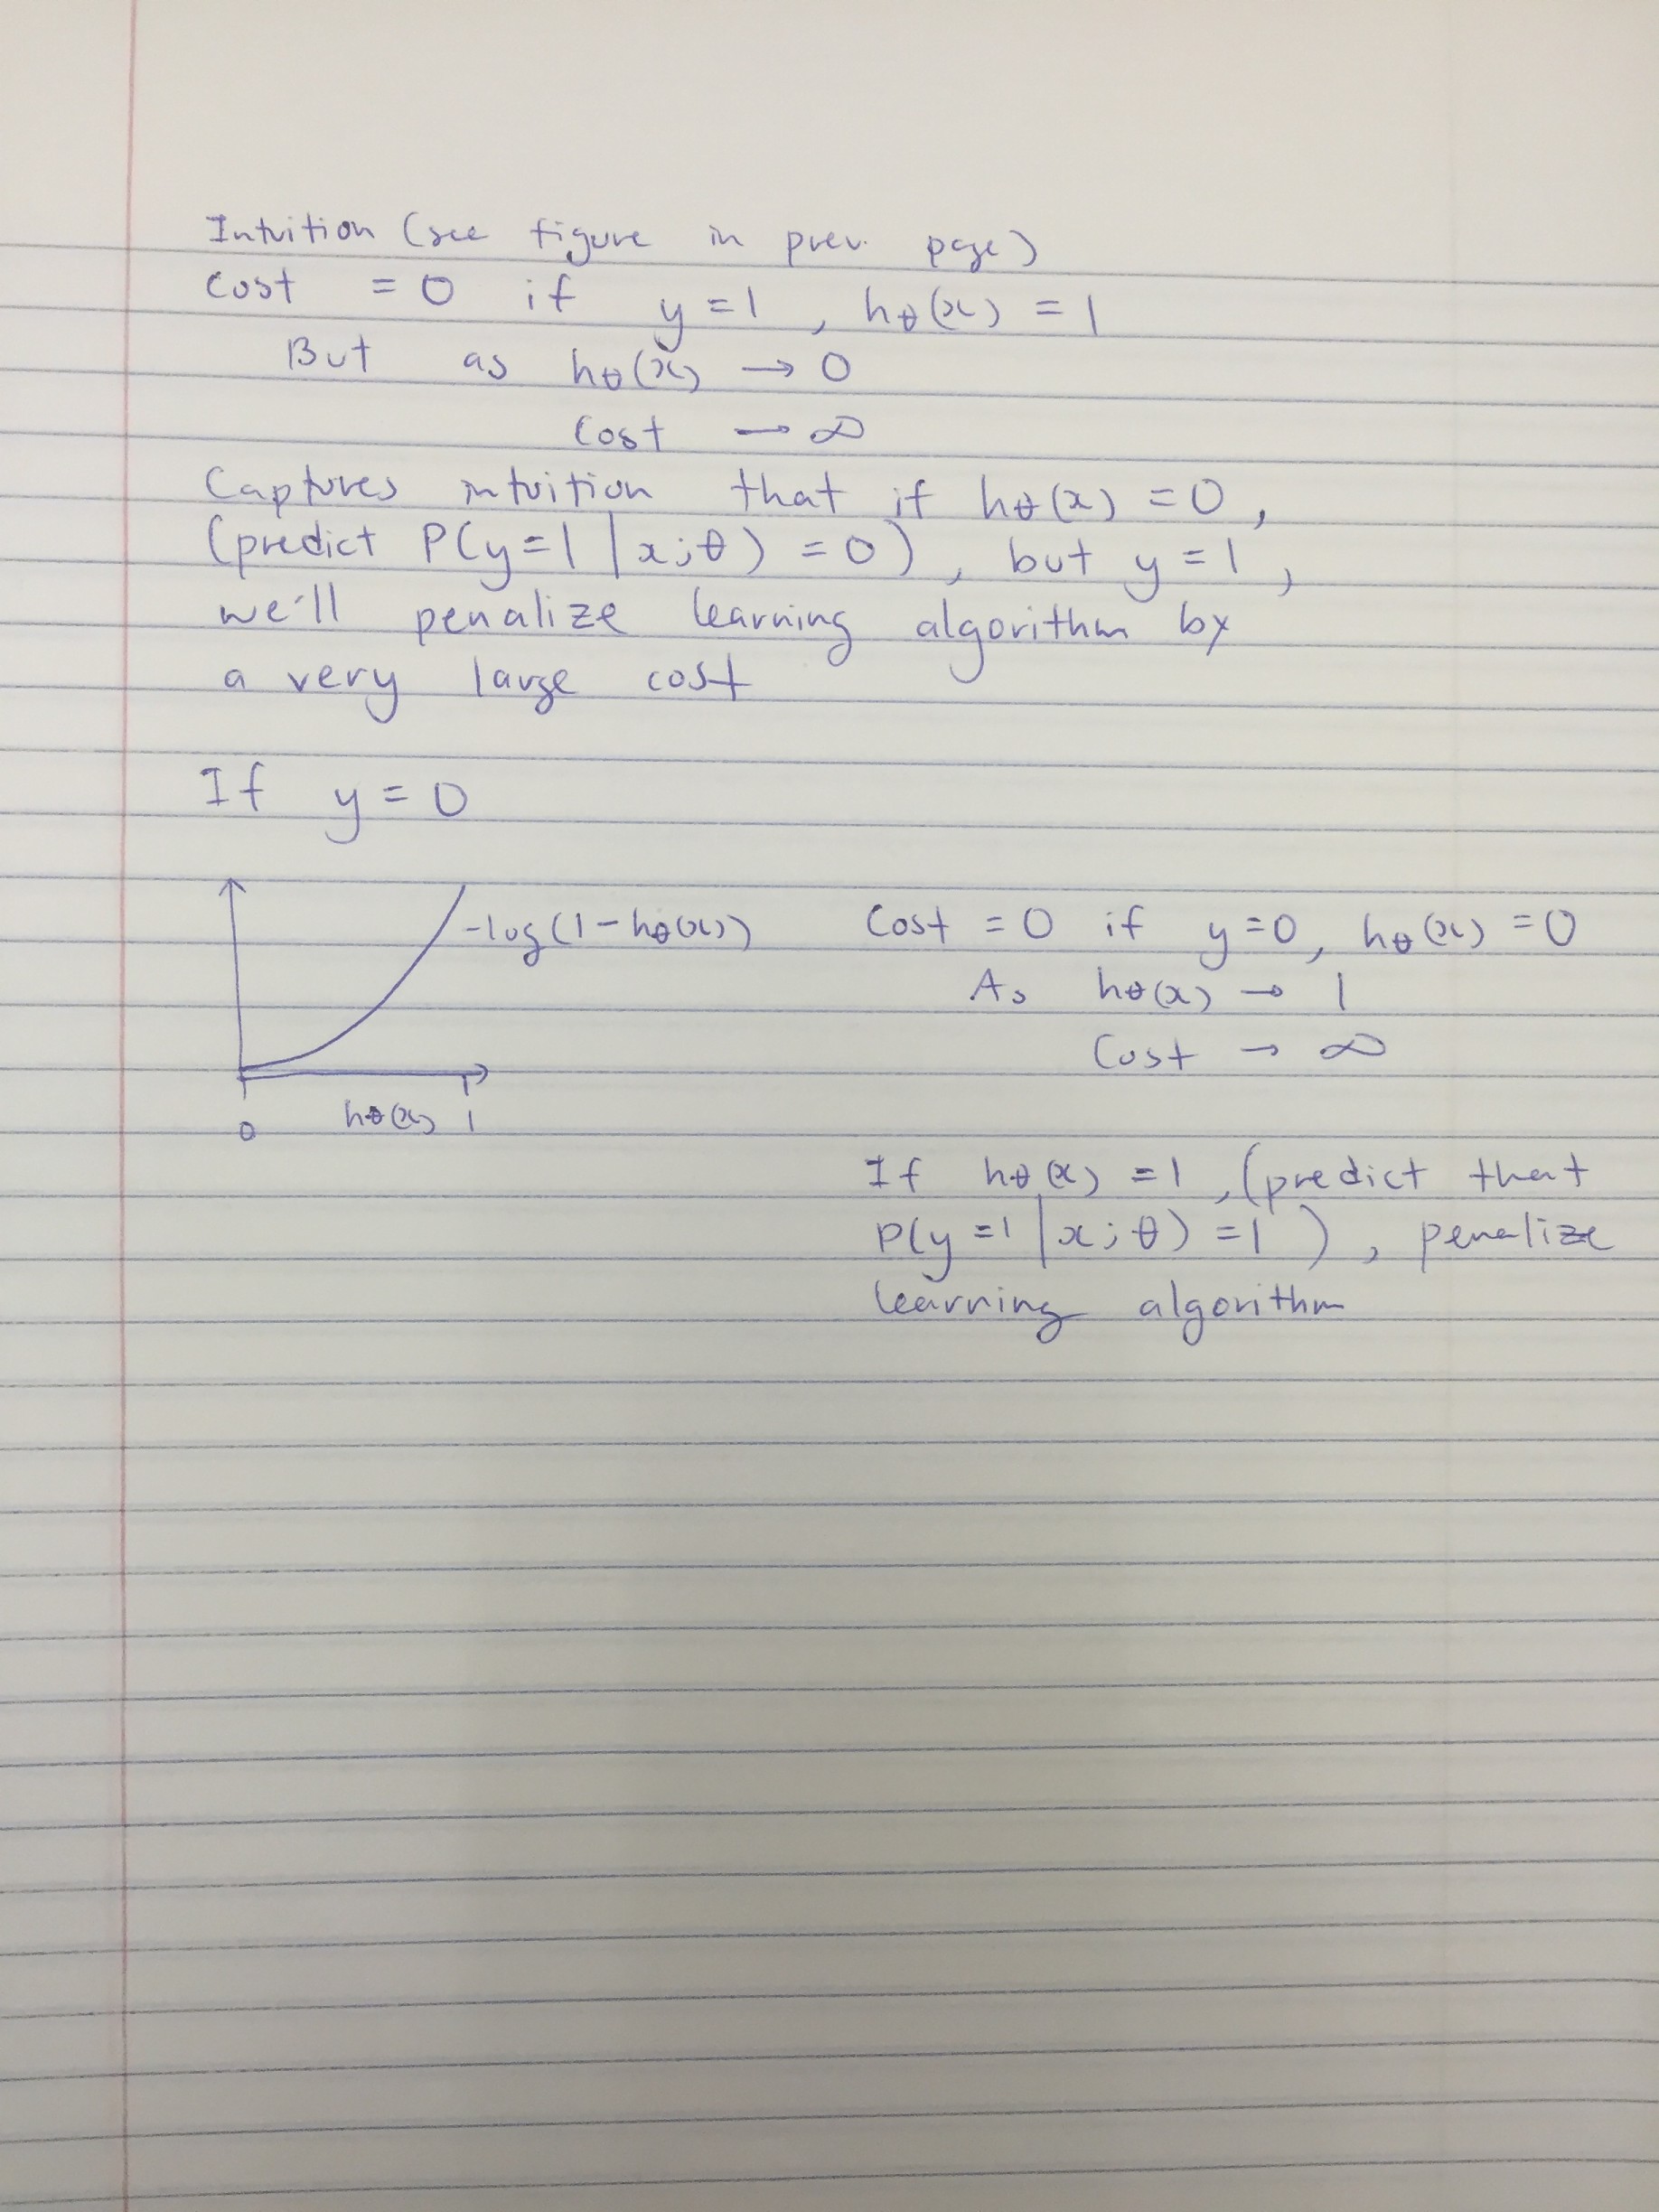 Intuition (see figure in prev. page)
Cost = 0 if y=1, hθ(x) = 1
But as hθ(x) → 0
Cost → ∞
Captures intuition that if hθ(x) = 0,
(predict P(y=1|x;θ) = 0), but y=1,
we'll penalize learning algorithm by
a very large cost
If y = 0
-log(1-hθ(x))
0 hθ(x) 1
Cost = 0 if y=0, hθ(x) = 0
As hθ(x) → 1
Cost → ∞
If hθ(x) = 1, (predict that
P(y=1|x;θ) = 1), penalize
learning algorithm